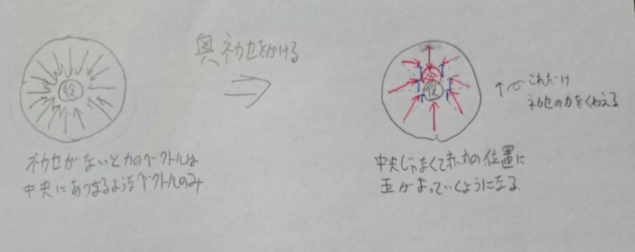 奥ネカセをかける
ネカセがないと力のベクトルは
中央にあつまるようなベクトルのみ
これだけ
ネカセの力をくわえる
中央じゃなくて赤丸の位置に
玉がよっていくようになる